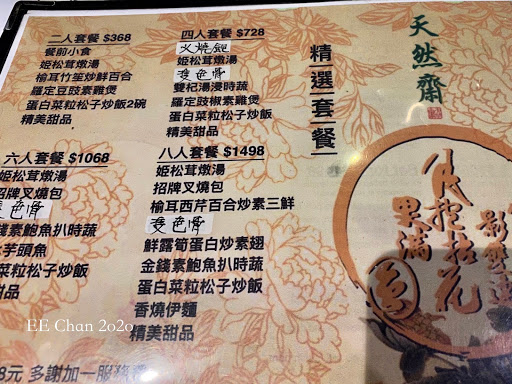 二人套餐 $368
餐前小食
姬松茸燉湯
榆耳竹笙炒鮮百合
羅定豆豉素雞煲
蛋白菜粒松子炒飯2碗
精美甜品
四人套餐 $728
火燒包
姬松茸燉湯
雙杞湯浸時蔬
羅定豉椒素雞煲
蛋白菜粒松子炒飯
精美甜品
六人套餐 $1068
姬松茸燉湯
招牌叉燒包
金錢素鮑魚扒時蔬
芋頭魚
菜粒松子炒飯
甜品
八人套餐 $1498
姬松茸燉湯
招牌叉燒包
榆耳西芹百合炒素三鮮
鮮露筍蛋白炒素翅
金錢素鮑魚扒時蔬
蛋白菜粒松子炒飯
香燒伊麵
精美甜品
精選套餐
天然齋
果滿
拈花
8元 多謝加一服務
EE Chan 2020